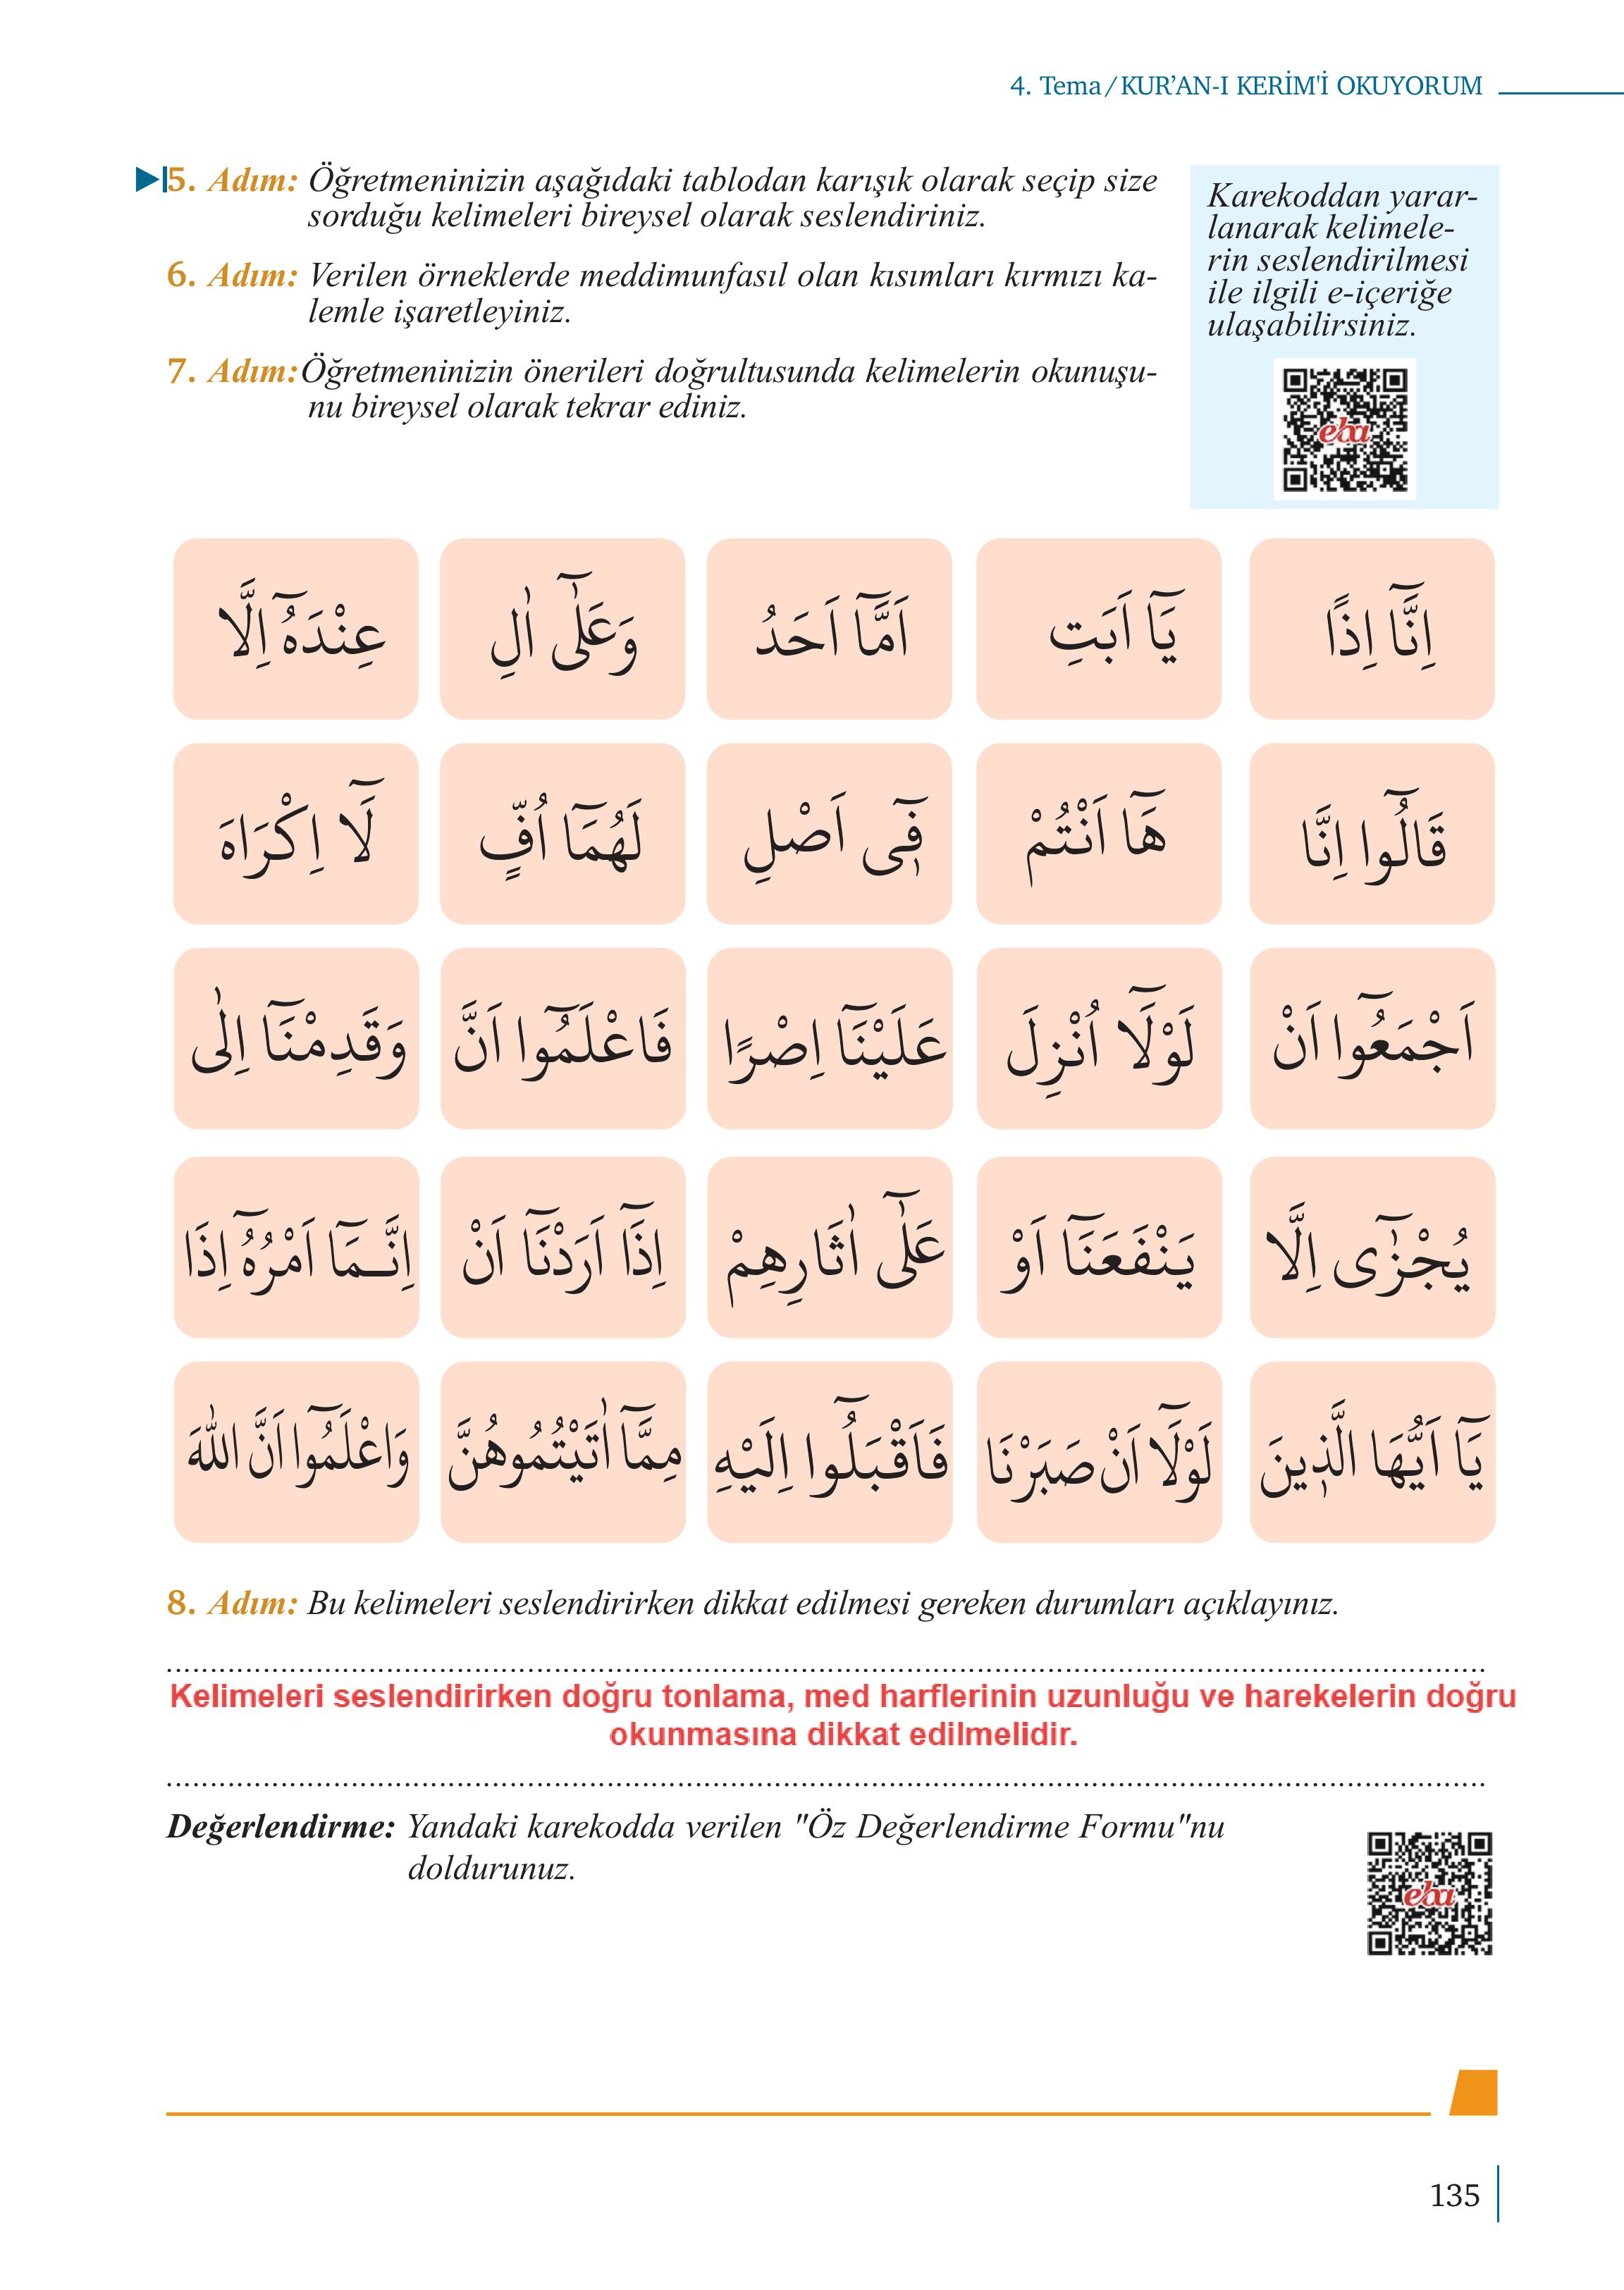 4. Tema/KUR’AN-I KERİM'İ OKUYORUM
5. Adım: Öğretmeninizin aşağıdaki tablodan karışık olarak seçip size
sorduğu kelimeleri bireysel olarak seslendiriniz.
6. Adım: Verilen örneklerde meddimunfasıl olan kısımları kırmızı ka-
lemle işaretleyiniz.
7. Adım:Öğretmeninizin önerileri doğrultusunda kelimelerin okunuşu-
nu bireysel olarak tekrar ediniz.
Karekoddan yarar-
lanarak kelimele-
rin seslendirilmesi
ile ilgili e-içeriğe
ulaşabilirsiniz.
eba
اِنَّٓا اِذًا
يَٓا اَبَتِ
اَمَّٓا اَحَدُ
وَعَلٰٓى اٰلِ
عِنْدَهُٓ اِلَّا
قَالُٓوا اِنَّا
هَٓا اَنْتُمْ
فٖٓى اَصْلِ
لَهُمَٓا اُفٍّ
لَٓا اِكْرَاهَ
اَجْمَعُٓوا اَنْ
لَوْلَٓا اُنْزِلَ
عَلَيْنَٓا اِصْرًا
فَاعْلَمُٓوا اَنَّ
وَقَدِمْنَٓا اِلٰى
يُجْزٰٓى اِلَّا
يَنْفَعَنَٓا اَوْ
عَلٰٓى اٰثَارِهِمْ
اِذَٓا اَرَدْنَٓا اَنْ
اِنَّـمَٓا اَمْرُهُٓ اِذَا
يَٓا اَيُّهَا الَّذٖينَ
لَوْلَٓا اَنْ صَبَرْنَا
فَاَقْبَلُٓوا اِلَيْهِ
مِمَّٓا اٰتَيْتُمُوهُنَّ
وَاعْلَمُٓوا اَنَّ اللّٰهَ
8. Adım: Bu kelimeleri seslendirirken dikkat edilmesi gereken durumları açıklayınız.
Kelimeleri seslendirirken doğru tonlama, med harflerinin uzunluğu ve harekelerin doğru
okunmasına dikkat edilmelidir.
Değerlendirme: Yandaki karekodda verilen "Öz Değerlendirme Formu"nu
doldurunuz.
eba
135